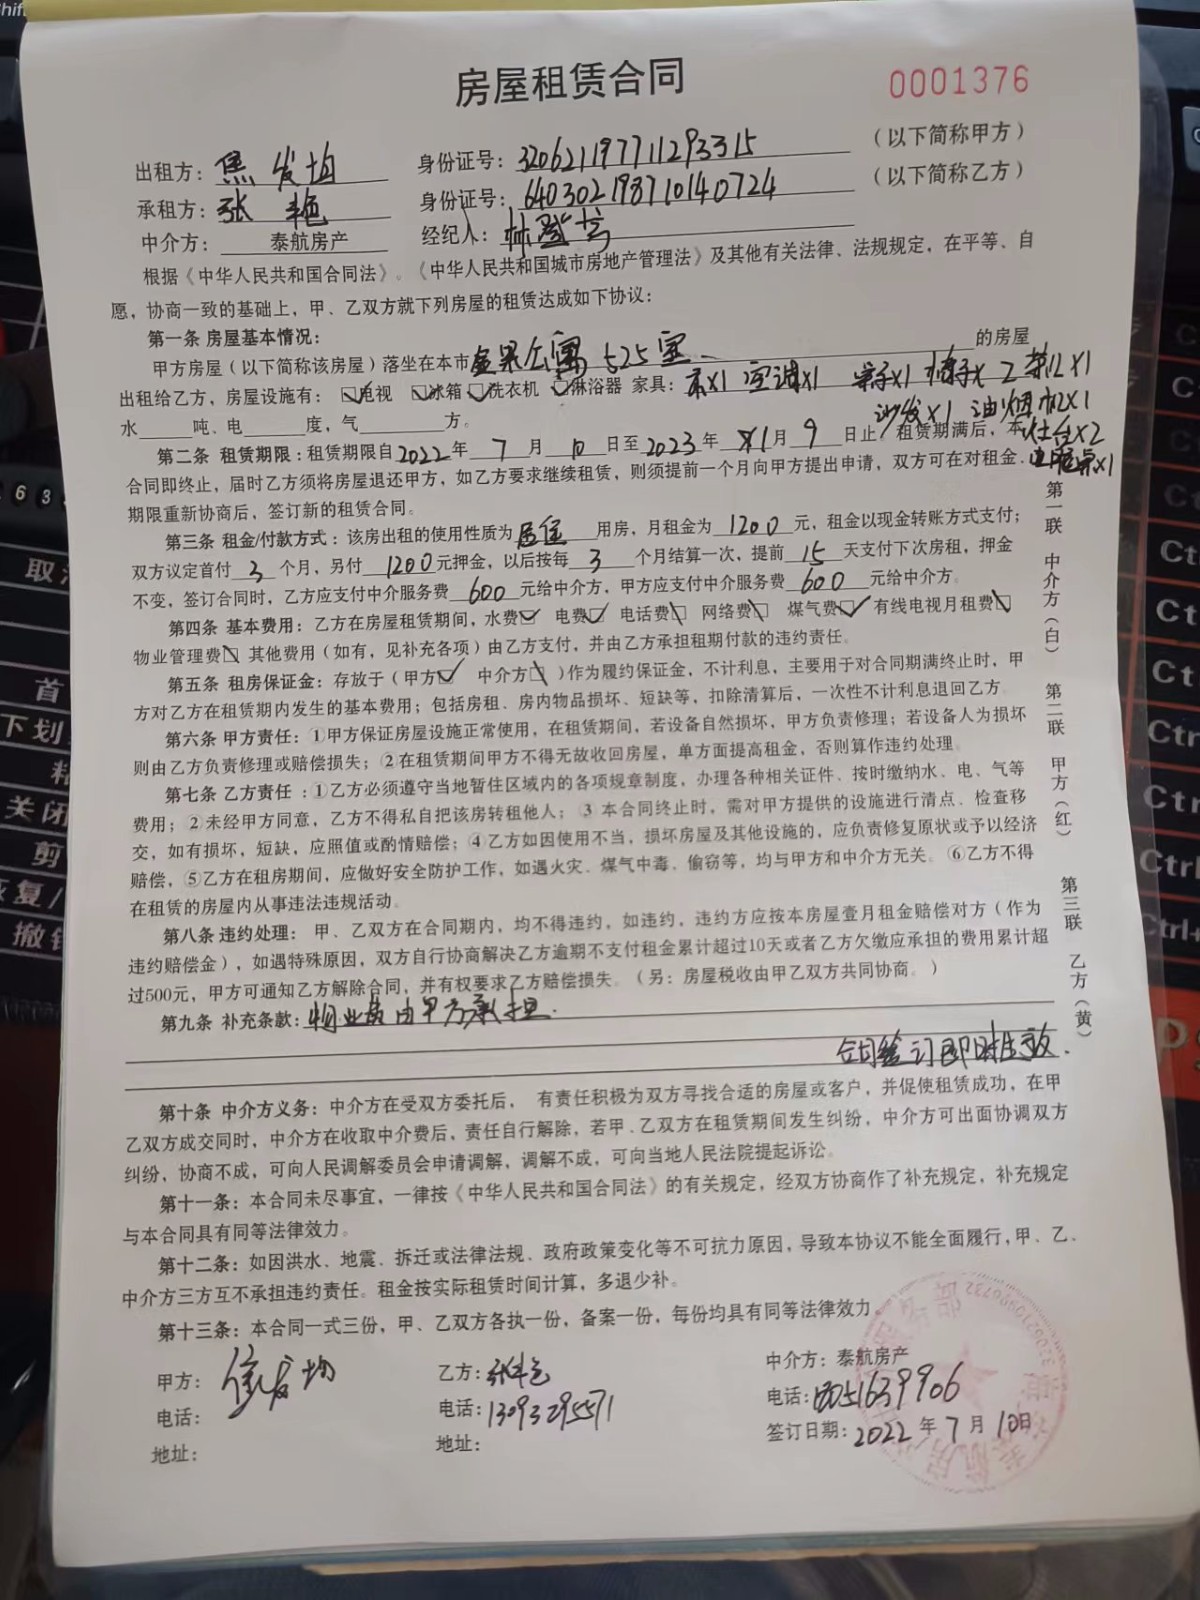 房屋租赁合同
0001376
出租方：焦发均 身份证号：320621197711293315 （以下简称甲方）
承租方：张艳 身份证号：640302198710140724 （以下简称乙方）
中介方：泰航房产 经纪人：林
根据《中华人民共和国合同法》。《中华人民共和国城市房地产管理法》及其他有关法律、法规规定，在平等、自
愿，协商一致的基础上，甲、乙双方就下列房屋的租赁达成如下协议：
第一条 房屋基本情况：
甲方房屋（以下简称该房屋）落坐在本市金果公寓525室 的房屋
出租给乙方，房屋设施有： 电视 冰箱 洗衣机 淋浴器 家具：床x1 空调x1 桌子x1 椅子x2 茶几x1
沙发x1 油烟机x1
水 吨、电 度，气 方。 灶台x2
第二条 租赁期限：租赁期限自2022年7月10日至2023年1月9日止，租赁期满后，本 电脑桌x1
合同即终止，届时乙方须将房屋退还甲方，如乙方要求继续租赁，则须提前一个月向甲方提出申请，双方可在对租金.
期限重新协商后，签订新的租赁合同。
第三条 租金/付款方式：该房出租的使用性质为居住用房，月租金为1200元，租金以现金转账方式支付；
双方议定首付3个月，另付1200元押金，以后按每3个月结算一次，提前15天支付下次房租，押金
不变，签订合同时，乙方应支付中介服务费600元给中介方，甲方应支付中介服务费600元给中介方。
第四条 基本费用：乙方在房屋租赁期间，水费☑ 电费☑ 电话费 网络费 煤气费☑ 有线电视月租费
物业管理费 其他费用（如有，见补充各项）由乙方支付，并由乙方承担租期付款的违约责任。
第五条 租房保证金：存放于（甲方☑ 中介方 ）作为履约保证金，不计利息，主要用于对合同期满终止时，甲
方对乙方在租赁期内发生的基本费用；包括房租、房内物品损坏、短缺等，扣除清算后，一次性不计利息退回乙方。
第六条 甲方责任：①甲方保证房屋设施正常使用，在租赁期间，若设备自然损坏，甲方负责修理；若设备人为损坏
则由乙方负责修理或赔偿损失；②在租赁期间甲方不得无故收回房屋，单方面提高租金，否则算作违约处理。
第七条 乙方责任：①乙方必须遵守当地暂住区域内的各项规章制度，办理各种相关证件、按时缴纳水、电、气等
费用；②未经甲方同意，乙方不得私自把该房转租他人；③ 本合同终止时，需对甲方提供的设施进行清点、检查移
交，如有损坏，短缺，应照值或酌情赔偿；④乙方如因使用不当，损坏房屋及其他设施的，应负责修复原状或予以经济
赔偿，⑤乙方在租房期间，应做好安全防护工作，如遇火灾、煤气中毒、偷窃等，均与甲方和中介方无关。⑥乙方不得
在租赁的房屋内从事违法违规活动。
第八条 违约处理： 甲、乙双方在合同期内，均不得违约，如违约，违约方应按本房屋壹月租金赔偿对方（作为
违约赔偿金），如遇特殊原因，双方自行协商解决乙方逾期不支付租金累计超过10天或者乙方欠缴应承担的费用累计超
过500元，甲方可通知乙方解除合同，并有权要求乙方赔偿损失。（另：房屋税收由甲乙双方共同协商。）
第九条 补充条款：物业费由甲方承担.
合同签订即时生效.
第十条 中介方义务：中介方在受双方委托后， 有责任积极为双方寻找合适的房屋或客户，并促使租赁成功，在甲
乙双方成交同时，中介方在收取中介费后，责任自行解除，若甲、乙双方在租赁期间发生纠纷，中介方可出面协调双方
纠纷，协商不成，可向人民调解委员会申请调解，调解不成，可向当地人民法院提起诉讼。
第十一条：本合同未尽事宜，一律按《中华人民共和国合同法》的有关规定，经双方协商作了补充规定，补充规定
与本合同具有同等法律效力。
第十二条：如因洪水、地震、拆迁或法律法规、政府政策变化等不可抗力原因，导致本协议不能全面履行，甲、乙、
中介方三方互不承担违约责任。租金按实际租赁时间计算，多退少补。
第十三条：本合同一式三份，甲、乙双方各执一份，备案一份，每份均具有同等法律效力。
甲方：焦发均 乙方：张艳 中介方：泰航房产
电话： 电话：13093295571 电话：1639906
地址： 地址： 签订日期：2022年7月10日
第一联 中介方（白） 第二联 甲方（红） 第三联 乙方（黄）